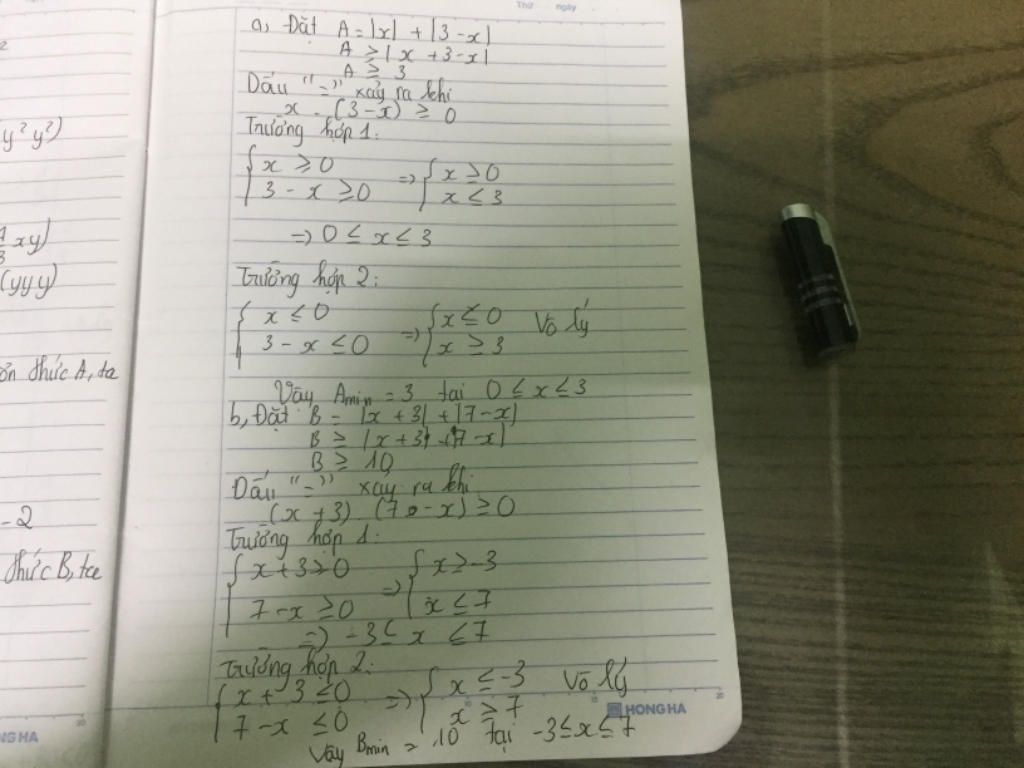 Thứ ngày
a, Đặt A = |x| + |3-x|
A ≥ |x + 3-x|
A ≥ 3
Dấu "=" xảy ra khi
x . (3-x) ≥ 0
Trường hợp 1:
x ≥ 0 => x ≥ 0
3 - x ≥ 0 x ≤ 3
=> 0 ≤ x ≤ 3
Trường hợp 2:
x ≤ 0 => x ≤ 0 Vô lý
3 - x ≤ 0 x ≥ 3
Vậy Amin = 3 tại 0 ≤ x ≤ 3
b, Đặt B = |x + 3| + |7-x|
B ≥ |x + 3 + 7 - x|
B ≥ 10
Dấu "=" xảy ra khi
(x + 3) (7 - x) ≥ 0
Trường hợp 1:
x + 3 ≥ 0 => x ≥ -3
7 - x ≥ 0 x ≤ 7
=> -3 ≤ x ≤ 7
Trường hợp 2:
x + 3 ≤ 0 => x ≤ -3 Vô lý
7 - x ≤ 0 x ≥ 7
Vậy Bmin = 10 tại -3 ≤ x ≤ 7
HONG HA
y² y²)
xy)
(yyy)
thức A, ta
-2
thức B, ta
NG HA